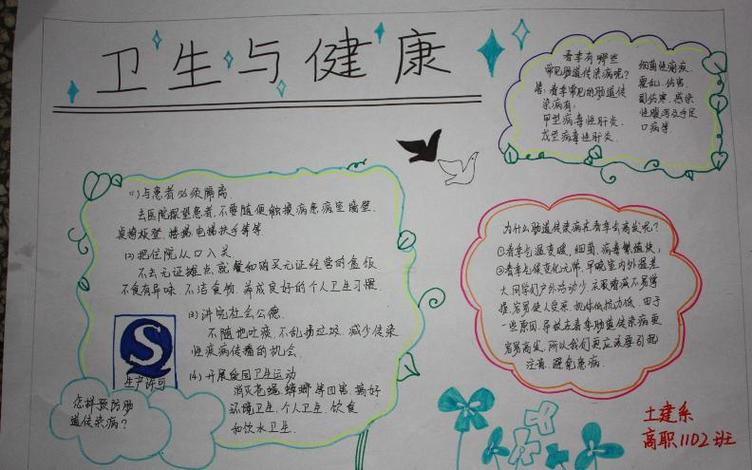 卫生与健康
春季有哪些
常见肠道传染病呢?
答:春季常见的肠道传
染病有:
甲型病毒性肝炎.
戊型病毒性肝炎.
细菌性痢疾.
霍乱.伤害.
副伤害.感染
性腹泻及手足
口病等
(1)与患者必须隔离
去医院探望患者,不要随便触摸病患病室墙壁.
桌椅板登.接触电梯扶手等等.
(2)把住院从口入关
不去无证摊点就餐和购买无证经营的盒饭
不食有异味.不洁食物.养成良好的个人卫生习惯.
(3)讲究社会公德.
不随地吐痰,不乱扔垃圾.减少传染
性疾病传播的机会.
(4)开展爱国卫生运动
消灭苍蝇.蟑螂等四害.搞好
环境卫生.个人卫生.饮食
和饮水卫生.
S
生产许可
怎样预防肠
道传染病?
为什么肠道传染病在春季会高发呢?
①春季气温变暖,细菌,病毒繁殖快;
②春季气候变化无常,早晚室内外温差
大.同学们户外活动少,
容易使人受寒.机体抵抗力低.由于
一些原因.导致在春季肠道传染病更
容易高发.所以我们更应该要引起
注意.避免患病.
土建系
高职1102班